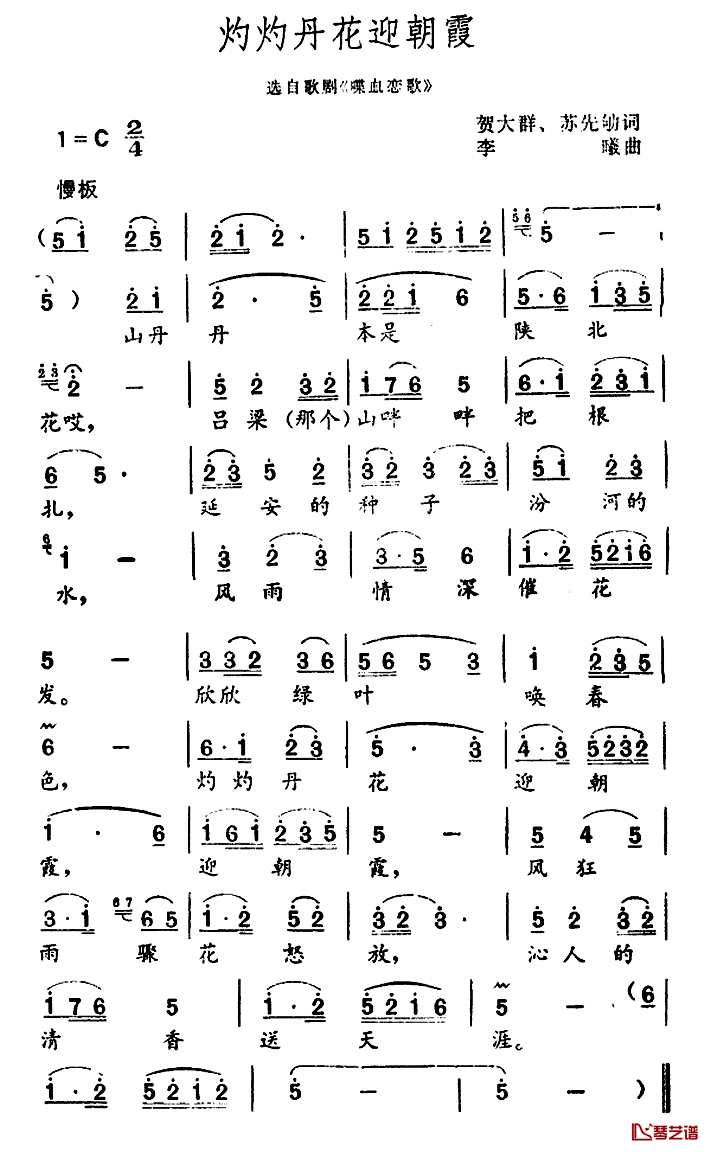 灼灼丹花迎朝霞
选自歌剧《喋血恋歌》
1=C 2/4
贺大群、苏先 词
李 曦曲
慢板
(5 1 2 5 | 2 1 2 · | 5 1 2 5 1 2 | 5 6 5 —
5 ) 2 1 | 2 · 5 | 2 2 1 6 | 5 · 6 1 3 5
山丹 丹 本是 陕 北
2 3 2 — | 5 2 3 2 | 1 7 6 5 | 6 · 1 2 3 1
花哎， 吕梁(那个)山畔 畔 把 根
6 5 · | 2 3 5 2 | 3 2 3 2 3 | 5 1 2 3
扎， 延 安 的 种 子 汾 河的
6 1 — | 3 2 | 3 · 5 6 | 1 · 2 5 2 1 6
水， 风雨 情 深 催 花
5 — | 3 3 2 3 6 | 5 6 5 3 | 1 2 3 5
发。 欣欣 绿 叶 唤春
6 — | 6 · 1 2 3 | 5 · 3 | 4 · 3 5 2 3 2
色， 灼灼丹 花 迎 朝
1 · 6 | 1 6 1 2 3 5 | 5 — | 5 4 5
霞， 迎 朝 霞， 风狂
3 · 1 6 7 6 5 | 1 · 2 5 2 | 3 2 3 · | 5 2 3 2
雨 骤 花 怒 放， 沁人的
1 7 6 5 | 1 · 2 | 5 2 1 6 | 5 — (6
清 香 送 天 涯。
1 · 2 | 5 2 1 2 | 5 — | 5 — )
琴艺谱